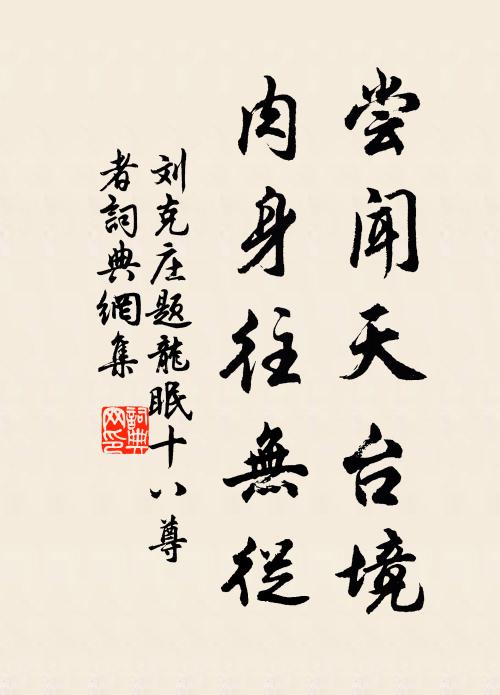 尝闻天台境
肉身往無從
刘克庄题龍眠十八尊
者詞典網集
詞典网印